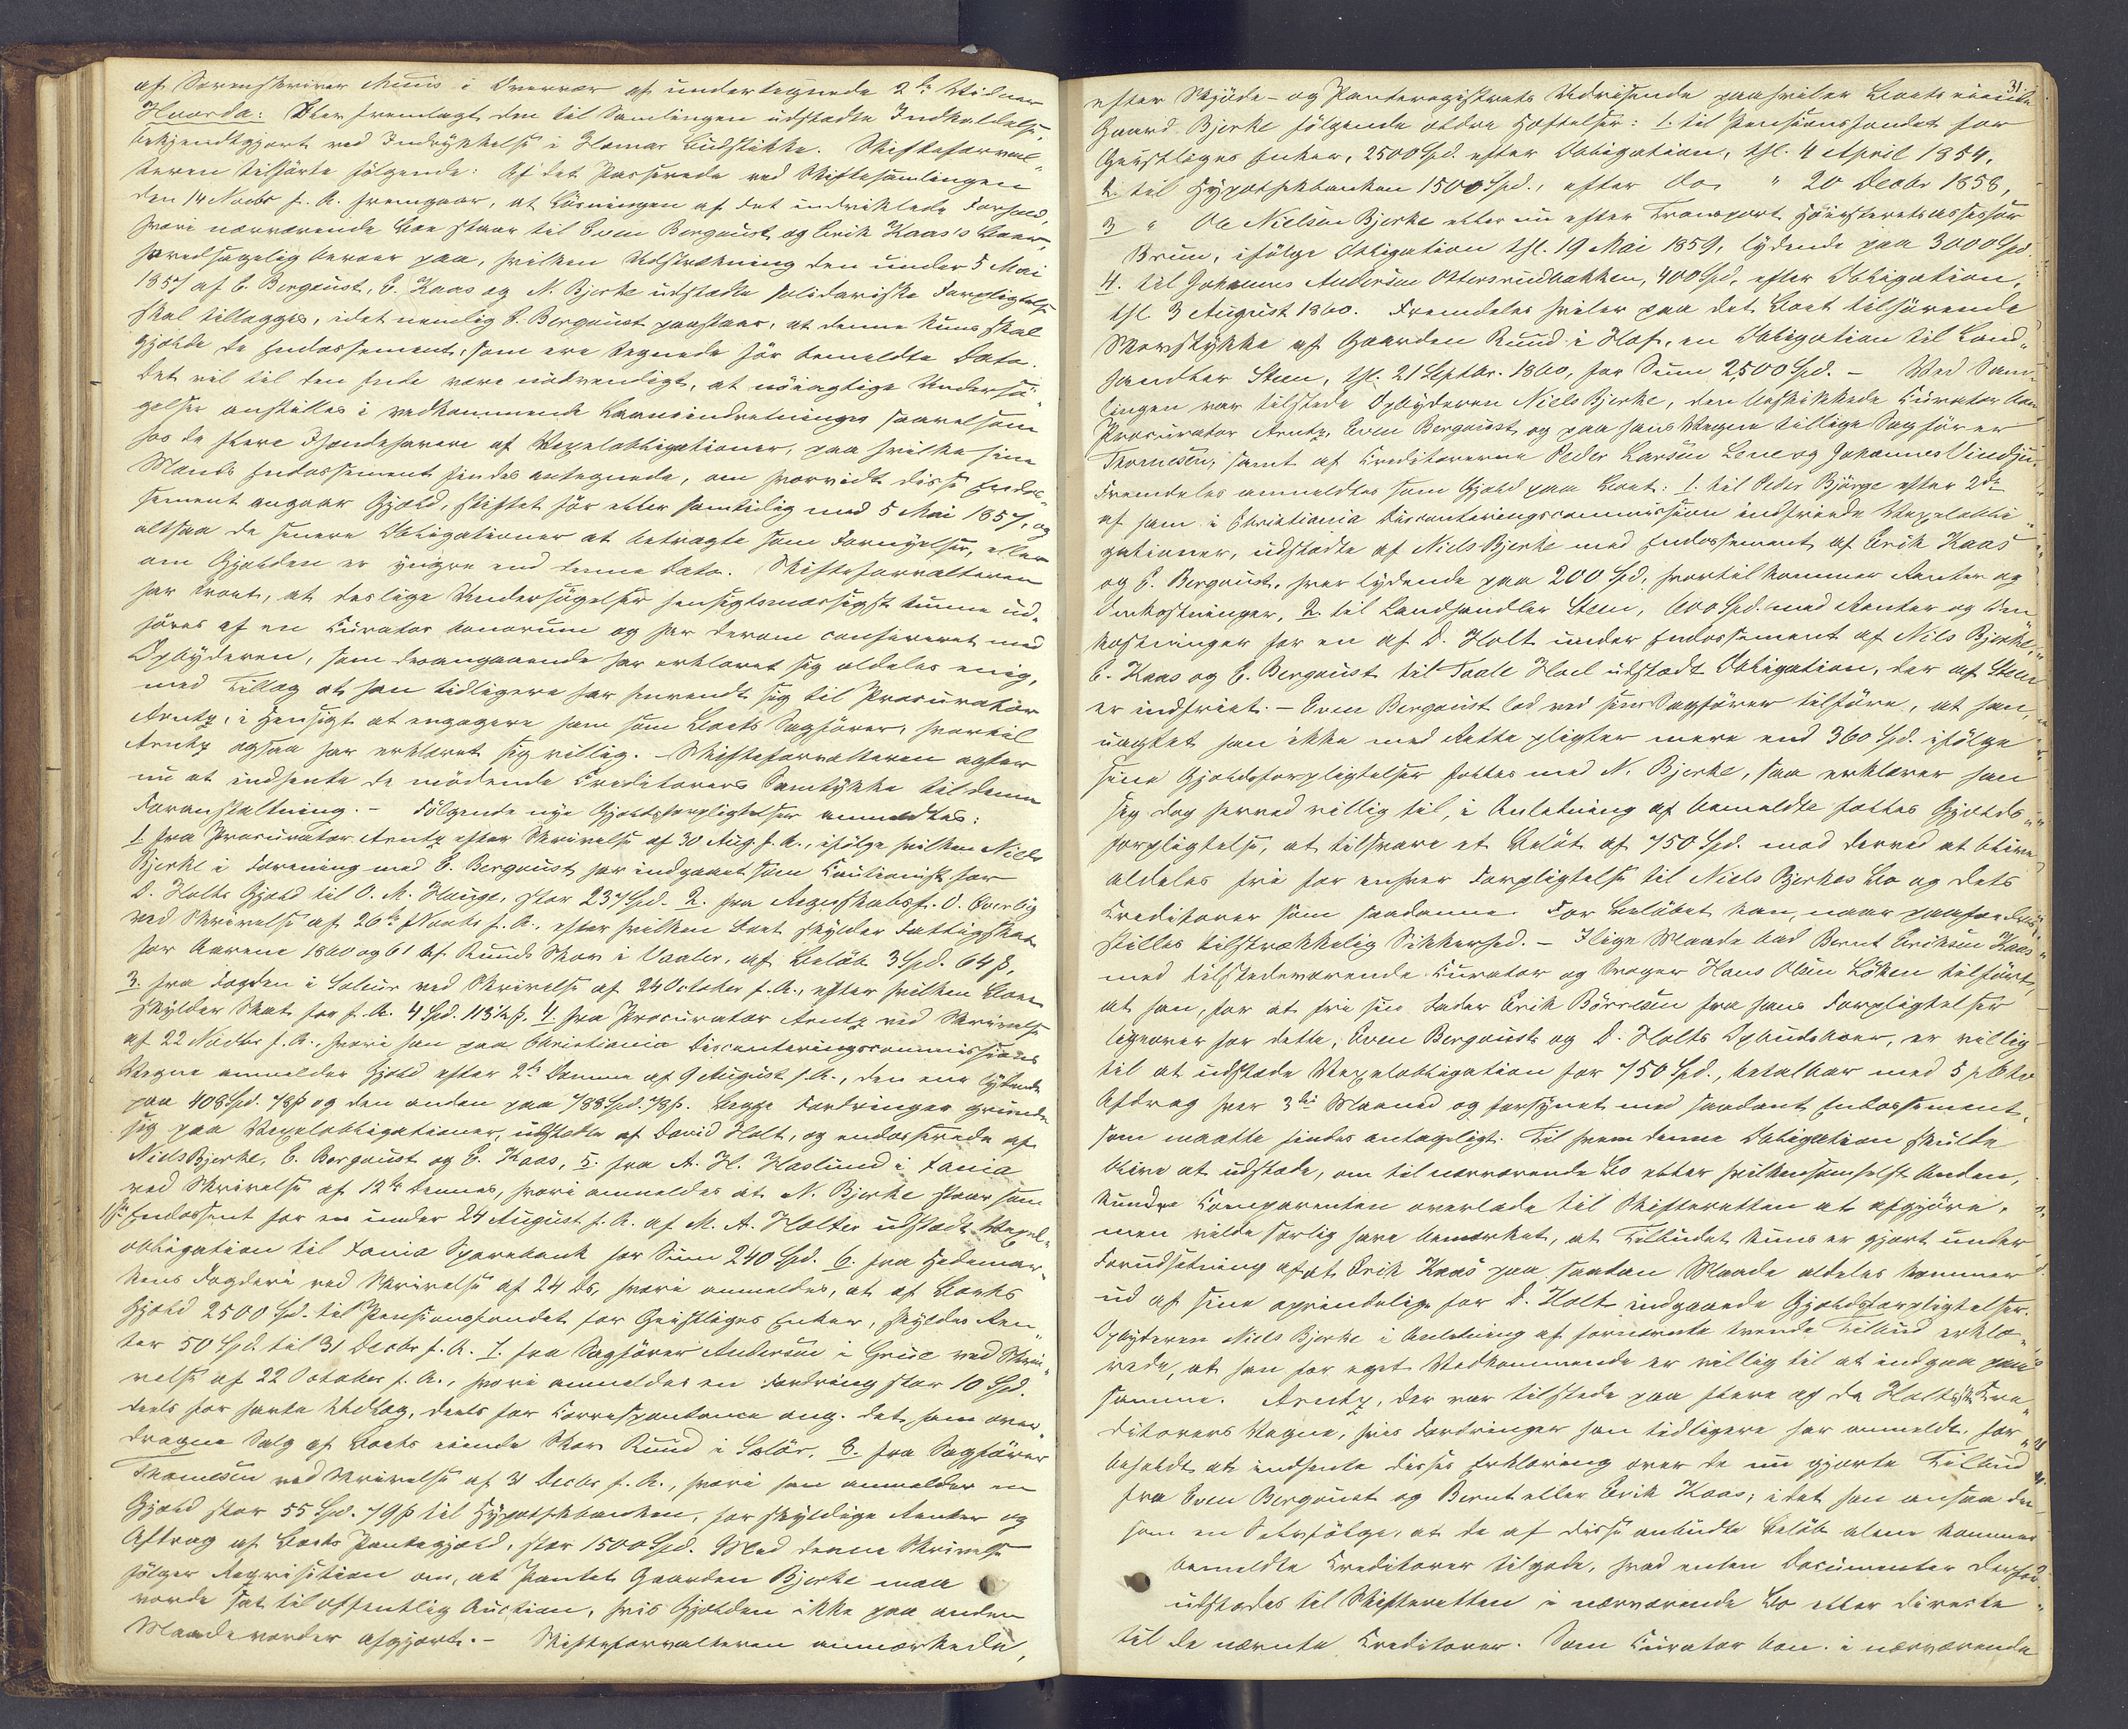 af Sorenskriver Munis i Overvær af undertegnede 2de Vidner
Hvorda: Blev fremlagt den til Samlingen udstædte Indkaldelse
bekjendtgjort ved Indrykkelse i Hamar Budstikke. Skifteforval-
teren tilførte følgende: Af det Passerede ved Skiftesamlingen
den 14 Novbr f. A. fremgaar, at Løsningen af det indviklede Forhold,
hvori nærværende Boe staar til Even Bergqust og Erik Kaas's Boer,
hovedsagelig beroer paa, hvilken Udstrækning den under 5 Mai
1857 af E. Bergqust, E. Kaas og N. Bjerke udstædte solidariske Forpligtelse
skal tillægges, idet nemlig E. Bergqust paastaar, at denne kuns skal
gjælde de Endossement, som ere tegnede før bemeldte Dato.
Det vil til den Ende være nødvendigt, at nøiagtige Undersø-
gelser anstilles i vedkommende Laaneindretninger saavelsom
hos de flere Ihændehavere af Vexelobligationer, paa hvilke fire
Mænds Endossement findes antegnede, om hvorvidt disse Endos-
sement angaar Gjæld, stiftet før eller samtidig med 5 Mai 1857, og
altsaa de senere Obligationer at betragte som Fornyelser, eller
om Gjælden er yngre end denne Dato. Skifteforvalteren
har troet, at deslige Undersøgelser hensigtsmæssigst kunne ud-
føres af en Curator bonorum og har derom confereret med
Opbyderen, som desangaaende har erklæret sig aldeles enig,
med Tillæg at han tidligere har henvendt sig til Procurator
Arntz, i Hensigt at engagere ham som Boets Sagfører, hvortil
Arntz ogsaa har erklæret sig villig. Skifteforvalteren agter
nu at indhente de mødende Creditorers Samtykke til denne
Foranstaltning. – Følgende nye Gjældsforpligtelser anmeldtes:
1. fra Procurator Arntz efter Skrivelse af 30 Aug. f. A., ifølge hvilken Niels
Bjerke i Forening med E. Bergqust har indgaaet som Cautionist for
D. Holts Gjæld til O. M. Hauge, stor 237 Spd. 2. fra Regnskabsf. O. Overby
ved Skrivelse af 26de Novbr f. A., efter hvilken Boet skylder Fattigskat
for Aarene 1860 og 61 af Ruuds Skov i Vaaler, af Beløb 3 Spd. 64 ß,
3. fra Fogden i Solør ved Skrivelse af 24 October f. A., efter hvilken Boet
skylder Skat for f. A. 4 Spd. 113½ ß. 4. fra Procurator Arntz ved Skrivelse
af 22 Novbr f. A., hvori han paa Christiania Disconteringscommissions
Vegne anmelder Gjæld efter 2de Domme af 9 August f. A., den ene lydende
paa 408 Spd. 78 ß og den anden paa 788 Spd. 78 ß. Begge Fordringer grunde
sig paa Vexelobligationer, udstædte af David Holt, og endosserede af
Niels Bjerke, E. Bergqust og E. Kaas, 5. fra A. H. Haslund i Xania
ved Skrivelse af 12te dennes, hvori anmeldes at N. Bjerke staar som
1ste Endossent for en under 24 August f. A. af M. A. Holter udstædt Vexel-
obligation til Xania Sparebank for Sum 240 Spd. 6. fra Hedemar-
kens Fogderi ved Skrivelse af 24 ds, hvori anmeldes, at af Boets
Gjæld 2500 Spd. til Pensionsfondet for Geistliges Enker, skyldes Ren-
ter 50 Spd. til 31 Decbr f. A. 7. fra Sagfører Andersen i Grue ved Skri-
velse af 22 October f. A., hvori anmeldes en Fordring stor 10 Spd.
deels for havte Udlæg, deels for Correspondance ang. det ham over-
dragne Salg af Boets eiende Skov Ruud i Solør, 8. fra Sagfører
Thomesen ved Skrivelse af 31 Decbr f. A., hvori han anmelder en
Gjæld stor 55 Spd. 79 ß til Hypothekbanken, for skyldige Renter og
Afdrag af Boets Pantegjæld, stor 1500 Spd. Med denne Skrivelse
følger Reqvisition om, at Pantet Gaarden Bjerke maa
vorde sat til offentlig Auction, hvis Gjælden ikke paa anden
Maade vorder afgjort. – Skifteforvalteren anmærkede,
31.
efter Skjøde- og Panteregistrets Udvisende paahviler Boets eiende
Gaard Bjerke følgende ældre Hæftelser: 1. til Pensionsfondet for
Geistliges Enker, 2500 Spd. efter Obligation, thl. 4 April 1854,
2. til Hypothekbanken 1500 Spd., efter do. " 20 Decbr 1858,
3 " Ole Nielsen Bjerke eller nu efter Transport Høiesteretsassessor
Bruun, ifølge Obligation thl. 19 Mai 1859, lydende paa 3000 Spd.
4. til Johannes Andersen Ottersrudbakken, 400 Spd, efter Obligation,
thl. 3 August 1860. Fremdeles hviler paa det Boet tilhørende
Skovstykke af Gaarden Ruud i Hof, en Obligation til Land-
handler Steen, thl. 21 Septbr. 1860, for Sum 2,500 Spd. – Ved Sam-
lingen var tilstede Opbyderen Niels Bjerke, den beskikkede Curator bon
Procurator Arntz, Even Bergqust og paa hans Vegne tillige Sagfører
Thomesen, samt af Creditorerne Peder Larsen Lene og Johannes Vindju.
Fremdeles anmeldtes som Gjæld paa Boet: 1. til Peder Bjørge efter 2de
af ham i Christiania Disconteringscommission indfriede Vexelobli-
gationer, udstædte af Niels Bjerke med Endossement af Erik Kaas
og E. Bergqust, hver lydende paa 200 Spd, hvortil kommer Renter og
Omkostninger, 2. til Landhandler Steen, 600 Spd. med Renter og Om-
kostninger for en af D. Holt under Endossement af Nils Bjerke,
E. Kaas og E. Bergqust til Taale Hoel udstædt Obligation, der af Steen
er indfriet. – Even Bergqust lod ved sin Sagfører tilføre, at han,
uagtet han ikke med Rette pligter mere end 360 Spd. ifølge
sine Gjældsforpligtelser fælles med N. Bjerke, saa erklærer han
sig dog herved villig til, i Anledning af bemeldte fælles Gjælds-
forpligtelse, at tilsvare et Beløb af 750 Spd. mod derved at blive
aldeles fri for enhver Forpligtelse til Niels Bjerkes Bo og dets
Creditorer som saadanne. For Beløbet kan, naar paafordres,
stilles tilstrækkelig Sikkerhed. – Ilige Maade bad Bernt Eriksen Kaas
med tilstedeværende Curator og Svoger Hans Olsen Løken tilført,
at han, for at fri sin Fader Erik Børresen fra hans Forpligtelser
ligeover for dette, Even Bergqusts og D. Holts Opbudsboer, er villig
til at udstæde Vexelobligation for 750 Spd., betalbar med 5 pCto
Afdrag hver 3die Maaned og forsynet med saadant Endossement,
som maatte findes antageligt. Til hvem denne Obligation skulde
blive at udstæde, om til nærværende Bo eller hvilkensomhelst Anden,
kunde Comparenten overlade til Skifteretten at afgjøre,
men vilde særlig have bemærket, at Tilbudet kuns er gjort under
Forudsætning af at Erik Kaas paa saadan Maade aldeles kommer
ud af sine oprindelige for D. Holt indgaaede Gjældsforpligtelser.
Opbyderen Niels Bjerke i Anledning af fornævnte tvende Tilbud erklæ-
rede, at han for eget Vedkommende er villig til at indgaa paa
samme. Arntz, der var tilstede paa flere af de Holtske Cre-
ditorers Vegne, hvis Fordringer han tidligere har anmeldt, for-
beholdt at indhente disses Erklæring over de nu gjorte Tilbud
fra Even Bergqust og Bernt eller Erik Kaas; idet han ansaa det
som en Selvfølge, at de af disse anbudte Beløb alene kommer
bemeldte Creditorer tilgode, hvad enten Documenter derfor
udstædes til Skifteretten i nærværende Bo eller directe
til de nævnte Creditorer. Som Curator bon. i nærværende